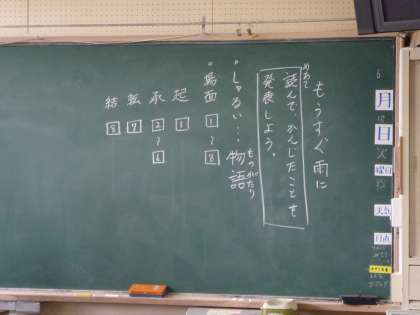 もうすぐ雨に
めあて
読んで、かんじたことを
発表しよう。
・しゅるい…物語
ものがたり
・場面 1〜8
起 1
承 2〜6
転 7
結 8
月
日
曜日
天気
日直